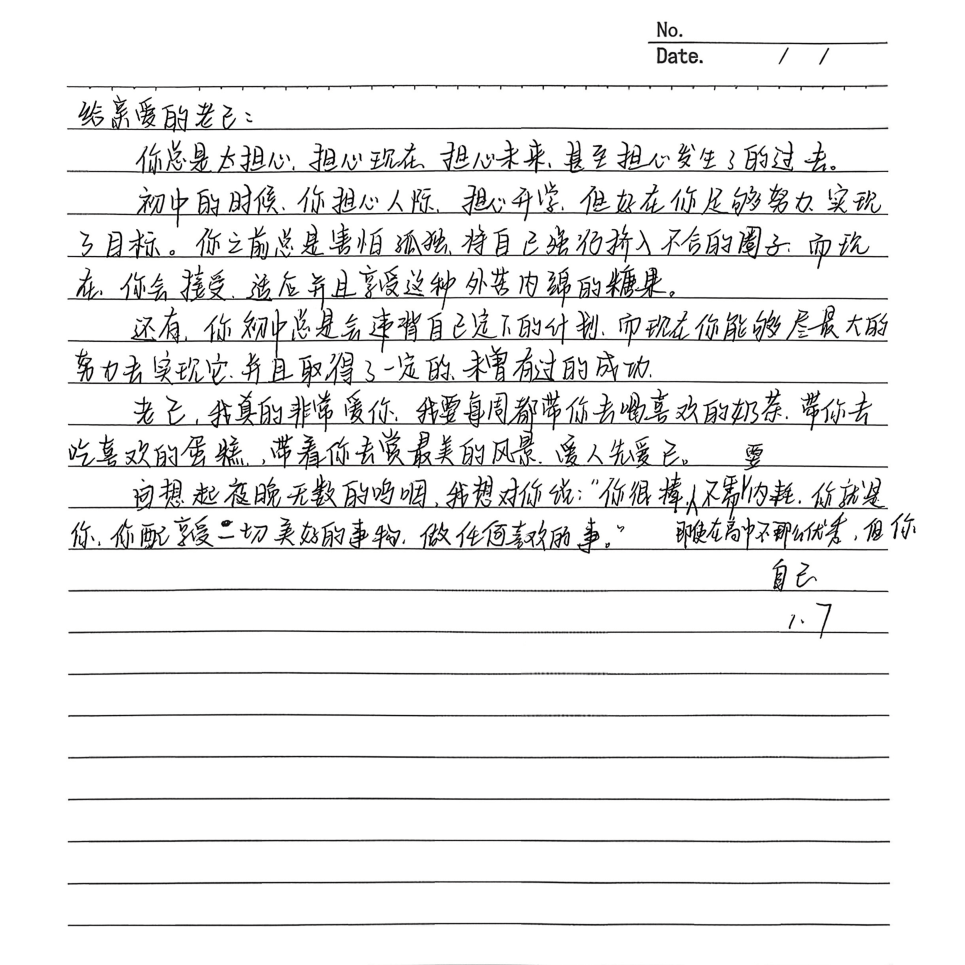 No.
Date. / /
给亲爱的老己：
你总是太担心、担心现在、担心未来、甚至担心发生了的过去。
初中的时候、你担心人际、担心升学、但好在你足够努力、实现
了目标。你之前总是害怕孤独、将自己强行挤入不合的圈子、而现
在、你会接受、适应并且享受这种外苦内绵的糖果。
还有、你初中总是会违背自己定下的计划、而现在你能够尽最大的
努力去实现它、并且取得了一定的、未曾有过的成功、
老己，我真的非常爱你、我要每周都带你去喝喜欢的奶茶、带你去
吃喜欢的蛋糕、带着你去赏最美的风景、爱人先爱己。
回想起夜晚无数的呜咽，我想对你说：“你很棒，不需要内耗、你就是
你、你配享受一切美好的事物、做任何喜欢的事。” 即使在高中不那么优秀，但你
自己
1.7